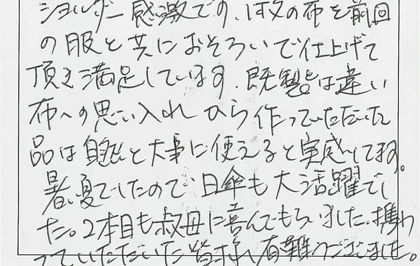 ショルダー感激です、1枚の布を前回
の服と共におそろいで仕上げて
頂き満足しています。既製とは違い
布への思い入れから作っていただいた
品は自然と大事に使えると実感してます。
暑い夏でしたので日傘も大活躍でし
た。2本目も叔母に喜んでもらいました。携わ
っていただいた皆様、有難うございました。